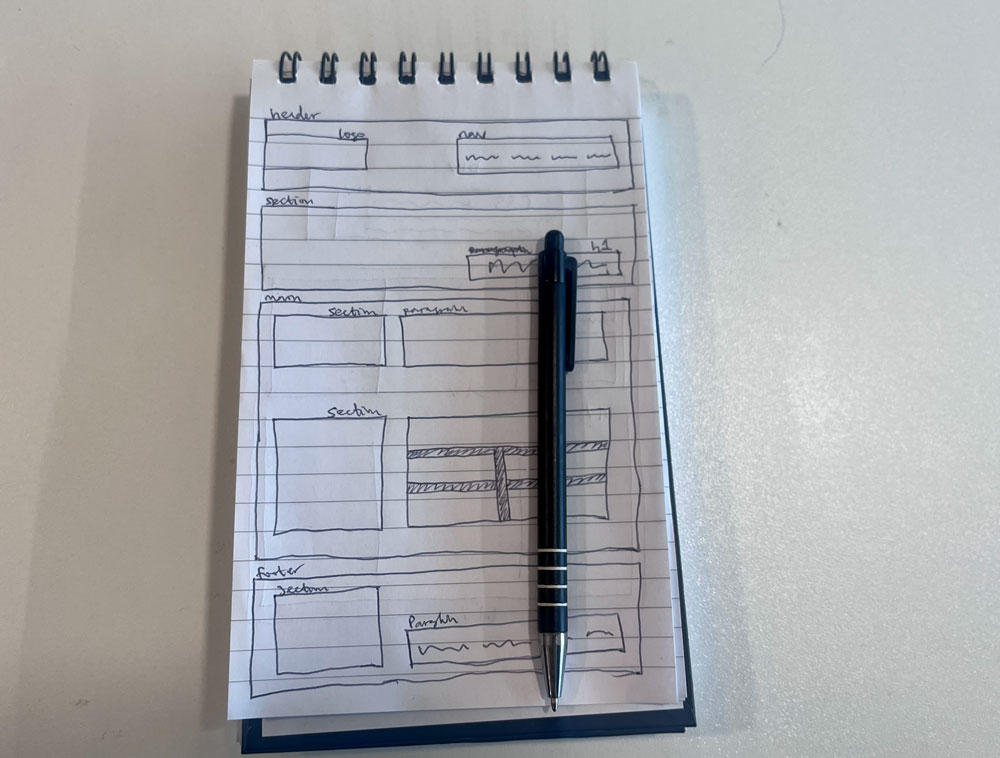 header
logo
nav
section
h1
main
section
paragraph
section
footer
section